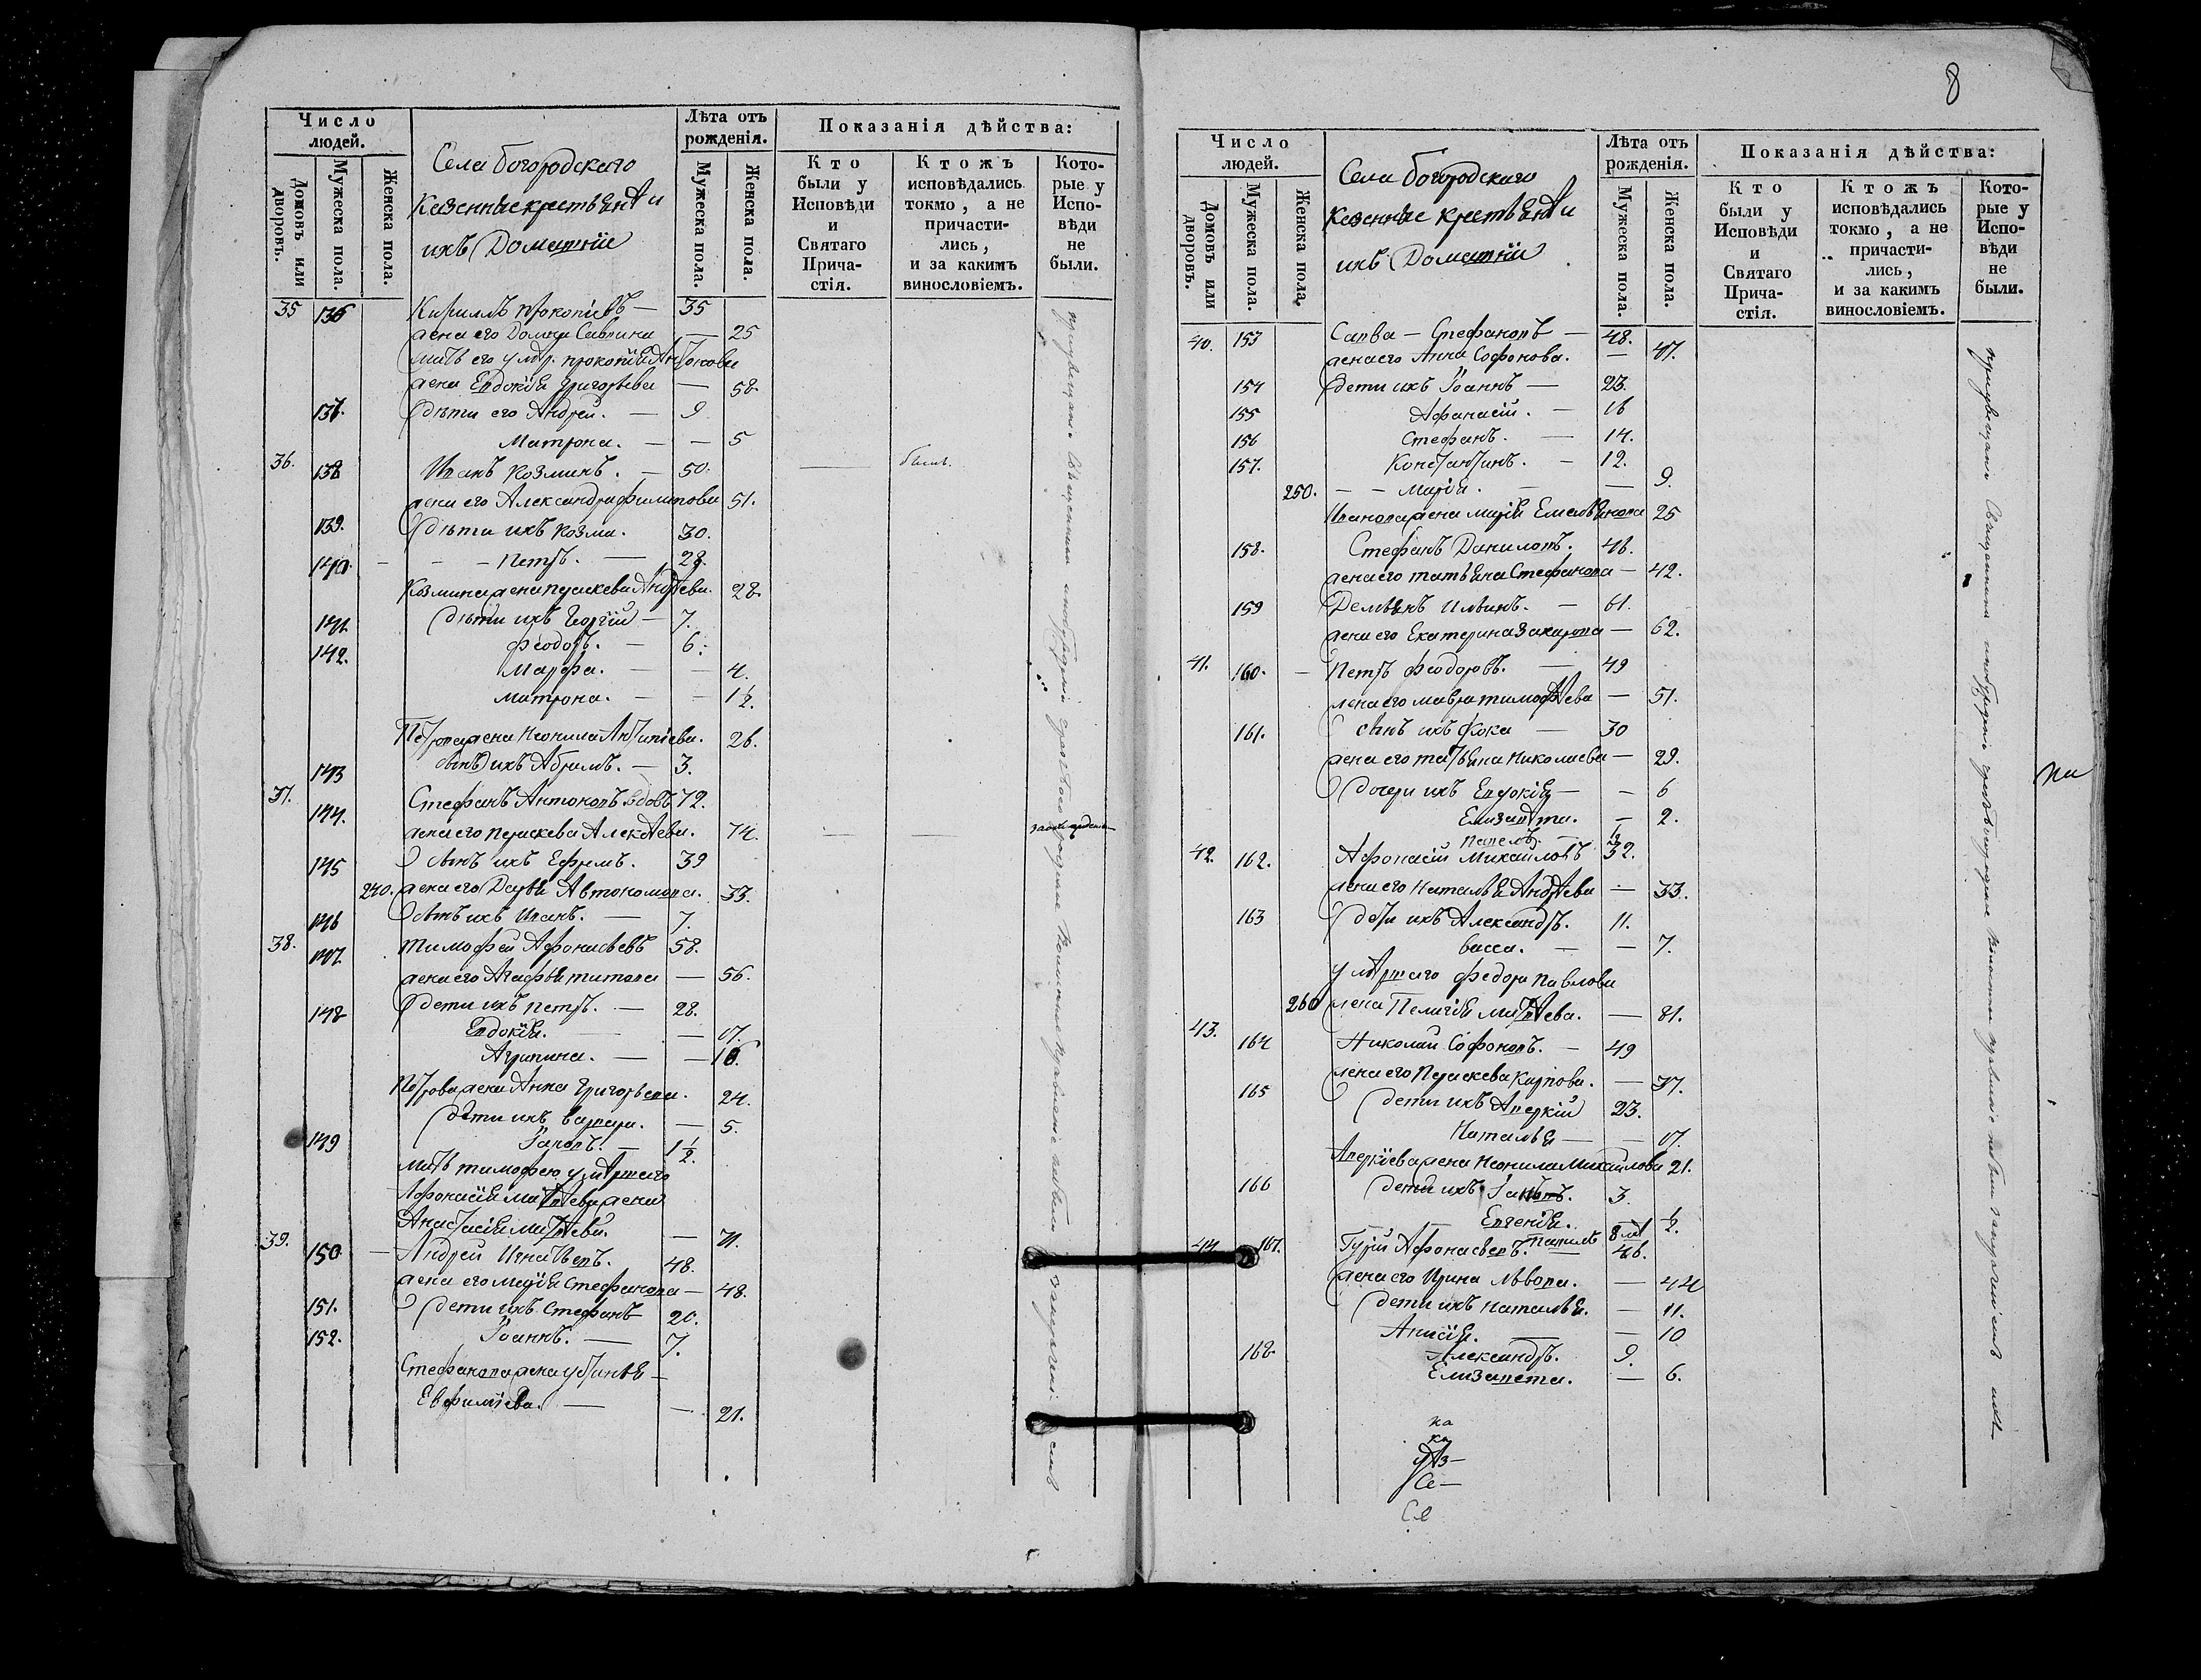 Число людей.
Домовъ или дворовъ.
Мужеска пола.
Женска пола.
Села Богородскаго
казенные крестьяне и
ихъ Домашніи
Лѣта отъ рожденія.
Мужеска пола.
Женска пола.
Показанія дѣйства:
Кто были у Исповѣди и Святаго Причастія.
Ктожъ исповѣдались токмо, а не причастились, и за какимъ винословіемъ.
Которые у Исповѣди не были.
35 136 Кириллъ Прокопіевъ — 35
жена его Домна Саввина — 25
мать его умер. Прокопія Антонова
жена Евдокія Григорьева — 58
137. дѣти его Андрей. — 9
Матрона. — — 5
36. 138 Иванъ Козминъ. — 50. — былъ.
жена его Александра Филипова 51.
139. дѣти ихъ Козма. 30.
140. - - - Петръ. — 28.
Козмина жена Параскева Андреева. 28
141 дѣти ихъ Георгій — 7.
142. Феодоръ. — 6.
Марфа. — — 4.
Матрона. — — 1½.
Петрова жена Неонила Антипіева. 26.
143 сынъ ихъ Абрамъ. — 3.
37. 144. Стефанъ Антоновъ вдовъ 72.
жена его Параскева Алексеева. 74. — —
145 сынъ ихъ Ефремъ. 39
240. жена его Дарья Автономова. 33.
146 сынъ ихъ Иванъ. — 7.
38. 147. Тимофей Афонасьевъ 58.
жена его Агафья Титова — 56.
148 дети ихъ Петръ. — 28.
Евдокія. — — 17.
Агрипина. — — 16.
Петрова жена Анна Григорьева. 24.
дети ихъ Варвара. — 5.
149 Іаковъ. — 1½.
мать Тимофею умершаго
Афонасія Матвеева жена
Анастасія Матвеева. — 71.
39. 150 — Андрей Игнатьевъ. 48.
жена его Марія Стефанова — 48.
151. дети ихъ Стефанъ 20.
152. Іоаннъ. — 7.
Стефанова жена Устинья —
Евфиміева. — — 21.
8
Число людей.
Домовъ или дворовъ.
Мужеска пола.
Женска пола.
Села Богородскаго
казенные крестьяне и
ихъ Домашніи
Лѣта отъ рожденія.
Мужеска пола.
Женска пола.
Показанія дѣйства:
Кто были у Исповѣди и Святаго Причастія.
Ктожъ исповѣдались токмо, а не причастились, и за какимъ винословіемъ.
Которые у Исповѣди не были.
40. 153 Савва — Стефановъ — 48.
жена его Анна Софонова. — 47.
154 дети ихъ Іоаннъ — 23.
155 Афанасій. — 16
156 Стефанъ. — 14.
157. Константинъ. — 12.
250. — — Марія. — — 9.
Иванова жена Марія Емельянова 25
158. Стефанъ Даниловъ. 46.
жена его Татьяна Стефанова — 42.
159 Демьянъ Ильинъ. — 61.
жена его Екатерина Захарова — 62.
41. 160. — Петръ Феодоровъ. — 49
жена его Мавра Тимофеева — 51.
161. сынъ ихъ Фока — 30
жена его Татьяна Николаева — 29.
дочери ихъ Евдокія — — 6
Елизавета. — 2.
Павелъ. — ½
42. 162. Афонасій Михайловъ 32.
жена его Наталья Андреева — 33.
163 дети ихъ Александръ. 11.
Васса. — — 7.
умершаго Федора Павлова
260 жена Пелагія Матвеева. — 81.
43. 164 Николай Софоновъ. — 49
жена его Параскева Карпова. — 37.
165 дети ихъ Аверкій 23.
Наталья — — 17.
Аверкіева жена Неонила Михайлова 21.
166 дети ихъ Іаковъ. 3.
Евгенія. — ½.
44. 167. Гурій Афонасьевъ. 46.
жена его Ирина Львова. — 44
дети ихъ Наталья. — 11.
Анисія. — — 10
168 Александръ. 9.
Елизавета. — 6.
ка
ка
Се —
Се